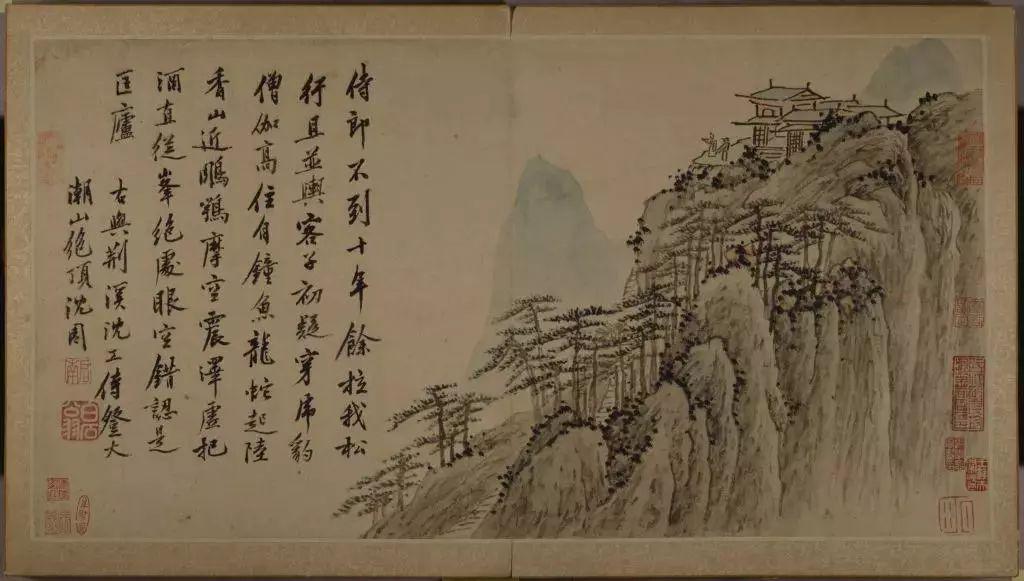 侍郎不到十年餘拉我松
行且並輿客子初疑穿虎豹
僧伽高住自鐘魚龍蛇起陸
香山近鵰鶚摩空震澤虛把
酒直從峯絕處眼空錯認是
匡廬
右與荆溪沈工侍登大
潮山絕頂沈周
啟南
白石翁